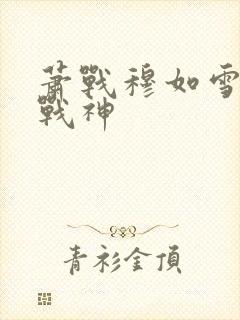 蕭戰穆如雪
戰神
青衫金頂